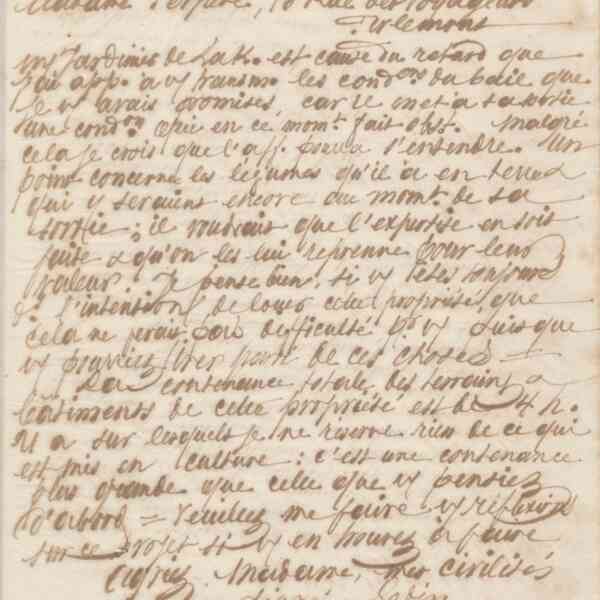 Madame
Tirlemont
Jardinier de Lak. est cause du retard que
j'ai app. a vs transm. les condons du baie que
je vs avais promises, car il met a sa sortie
une condon qui en ce momt fait obst. Malgré
cela je crois que l'aff. pourra s'entendre. Un
point concerne les légumes qu'il a en terre &
qui y seraient encore au momt de sa
sortie ; il voudrait que l'expertise en soit
faite & qu'on les lui reprenne pour leur
valeur. Je pense bien, si vs êtes toujours
d. l'intention de louer cette propriété, que
cela ne ferait pas difficulté pr vs puisque
vs pourriez tirer parti de ces choses —
La contenance totale des terrains &
bâtiments de cette propriété est de 4 h.
11 a sur lesquels je ne reserve rien de ce qui
est mis en culture : c'est une contenance
plus grande que celle que vs pensiez
d'abord = Veuillez me faire vs réflexions
sur ce projet si vs en trouvez à faire
Agréez Madame, mes civilités
signé